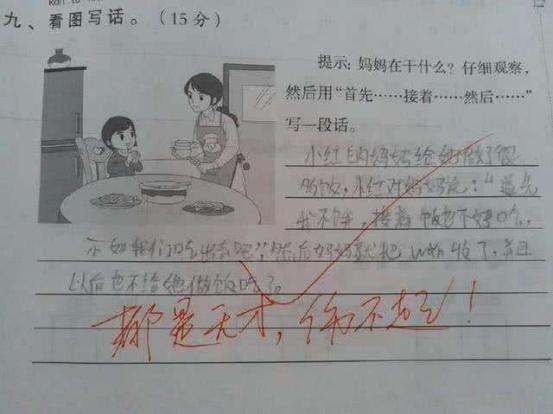 九、看图写话。(15分)
提示:妈妈在干什么?仔细观察,
然后用“首先……接着……然后……”
写一段话。
小红的妈妈给她做了很
多饭,小红对妈妈说:“首先
我不饿,接着饭也不好吃,
不如我们吃出去吧”,然后妈妈就把 收了,并且
以后也不给她做饭吃了。
都是天才,伤不起!